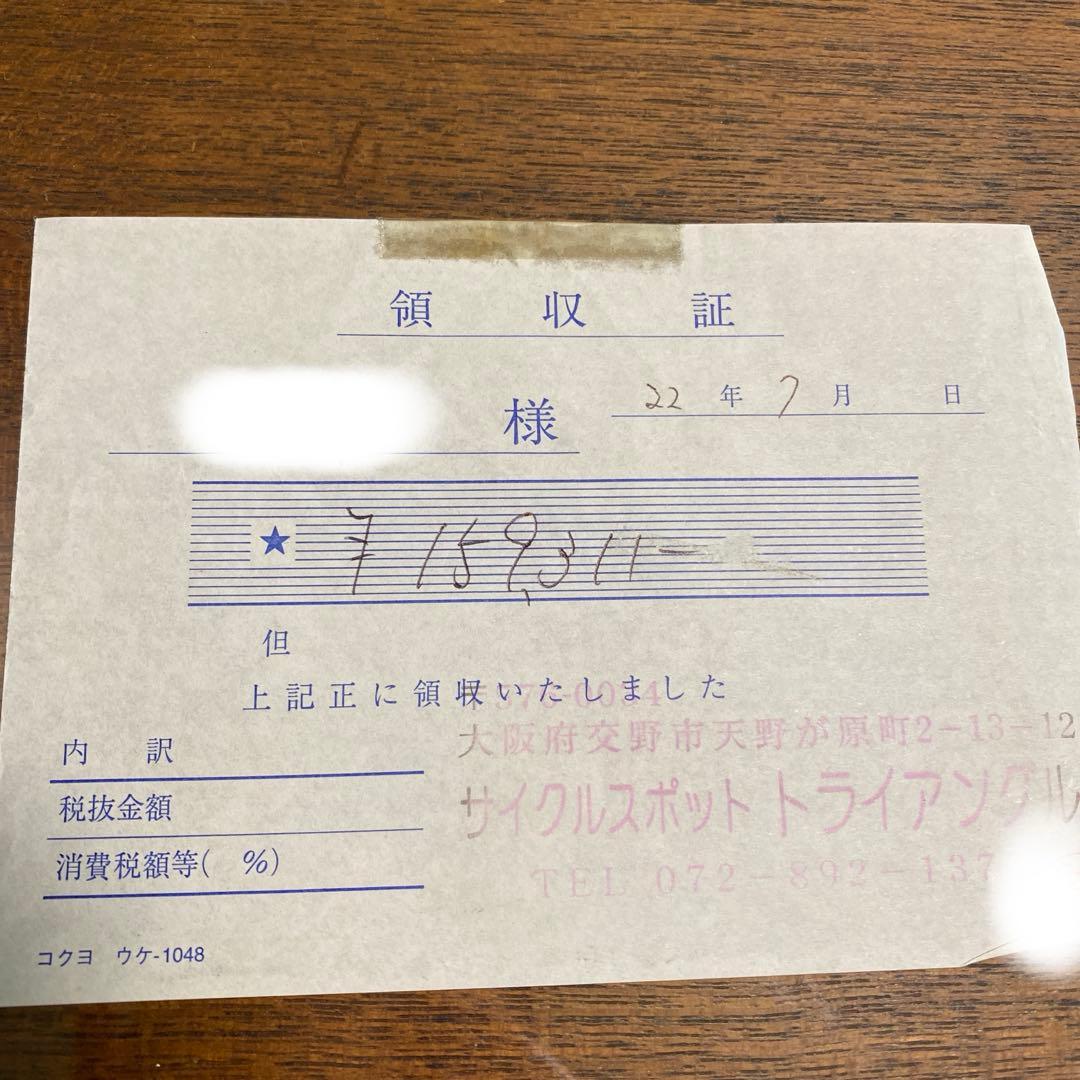 領収証
様
22年7月 日
★ ¥159,311-
但
上記正に領収いたしました
〒576-0034
大阪府交野市天野が原町2-13-12
サイクルスポット トライアングル
TEL 072-892-137
内訳
税抜金額
消費税額等( %)
コクヨ ウケ-1048